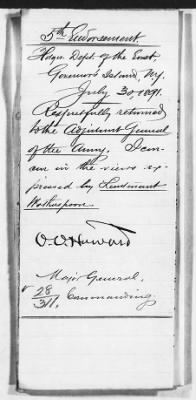 5th Endorsement.
Hdqrs Dept. of the East,
Governors Island, N.Y.
July 30 1891.
Respectfully returned
to the Adjutant General
of the Army. I con-
cur in the views ex-
pressed by Lieutenant
Wotherspoon.
O. O. Howard
Major General,
28
311. Commanding.